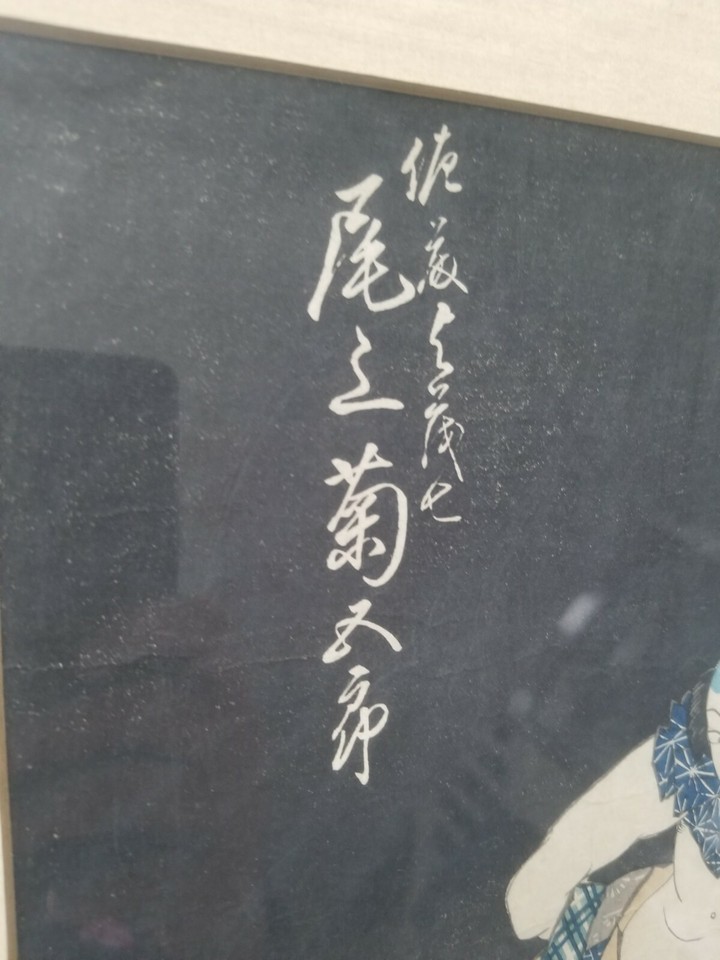 佐藤与茂七
尾上菊五郎